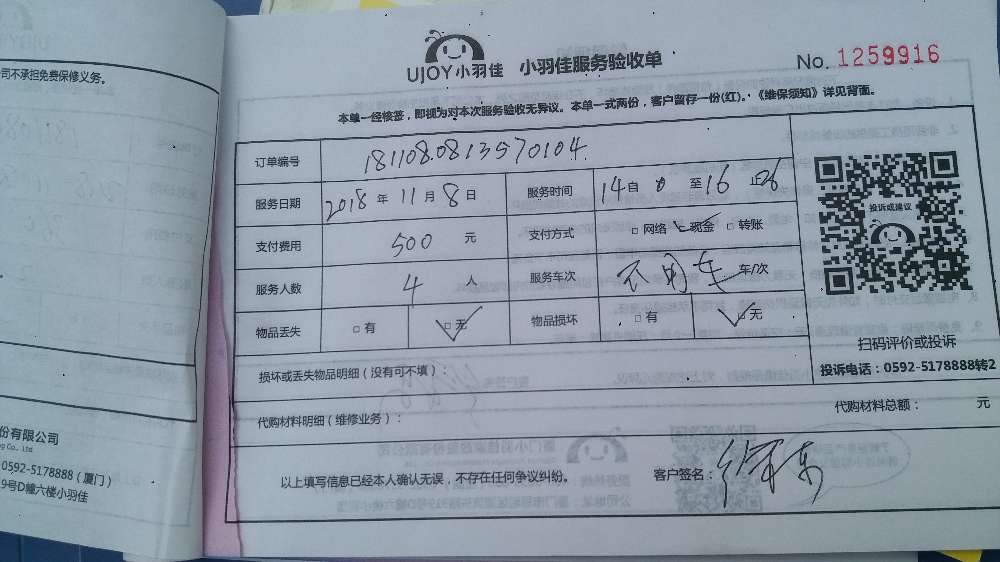 UJOY小羽佳 小羽佳服务验收单 No. 1259916
本单一经核签，即视为对本次服务验收无异议。本单一式两份，客户留存一份(红)。《维保须知》详见背面。
订单编号 181108.0813570104
服务日期 2018 年 11 月 8 日 服务时间 14 自 0 至 16 止
支付费用 500 元 支付方式 □ 网络 □ 现金 □ 转账
服务人数 4 人 服务车次 不用车 车/次
物品丢失 □ 有 □ 无 物品损坏 □ 有 □ 无
投诉或建议
扫码评价或投诉
投诉电话：0592-5178888转2
损坏或丢失物品明细（没有可不填）：
代购材料明细（维修业务）： 代购材料总额： 元
以上填写信息已经本人确认无误，不存在任何争议纠纷。 客户签名：
司不承担免费保修义务。
份有限公司
ng Co., Ltd
0592-5178888（厦门）
9号D幢六楼小羽佳